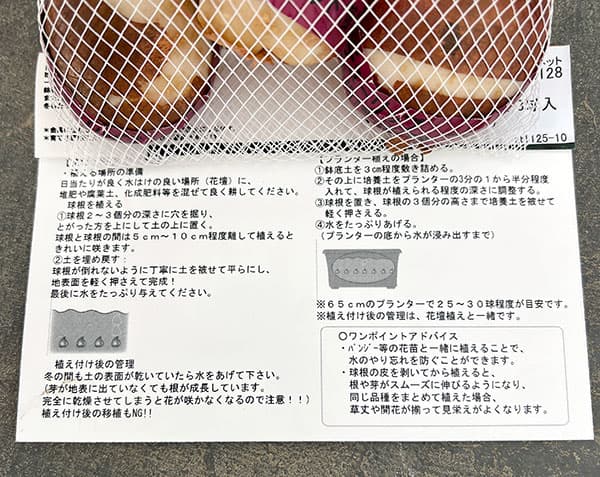 ネット
128
3球入
125-10
・植える場所の準備
日当たりが良く水はけの良い場所（花壇）に、
堆肥や腐葉土、化成肥料等を混ぜて良く耕してください。
球根を植える
①球根２～３個分の深さに穴を掘り、
とがった方を上にして土の上に置く。
球根と球根の間は５ｃｍ～１０ｃｍ程度離して植えると
きれいに咲きます。
②土を埋め戻す：
球根が倒れないように丁寧に土を被せて平らにし、
地表面を軽く押さえて完成！
最後に水をたっぷり与えてください。
植え付け後の管理
冬の間も土の表面が乾いていたら水をあげて下さい。
（芽が地表に出ていなくても根が成長しています。
完全に乾燥させてしまうと花が咲かなくなるので注意！！）
植え付け後の移植もNG!!
【プランター植えの場合】
①鉢底土を３cm程度敷き詰める。
②その上に培養土をプランターの3分の１から半分程度
入れて、球根が植えられる程度の深さに調整する。
③球根を置き、球根の３個分の高さまで培養土を被せて
軽く押さえる。
④水をたっぷりあげる。
（プランターの底から水が浸み出すまで）
※６５ｃｍのプランターで２５～３０球程度が目安です。
※植え付け後の管理は、花壇植えと一緒です。
〇ワンポイントアドバイス
・パンジー等の花苗と一緒に植えることで、
水のやり忘れを防ぐことができます。
・球根の皮を剥いてから植えると、
根や芽がスムーズに伸びるようになり、
同じ品種をまとめて植えた場合、
草丈や開花が揃って見栄えがよくなります。